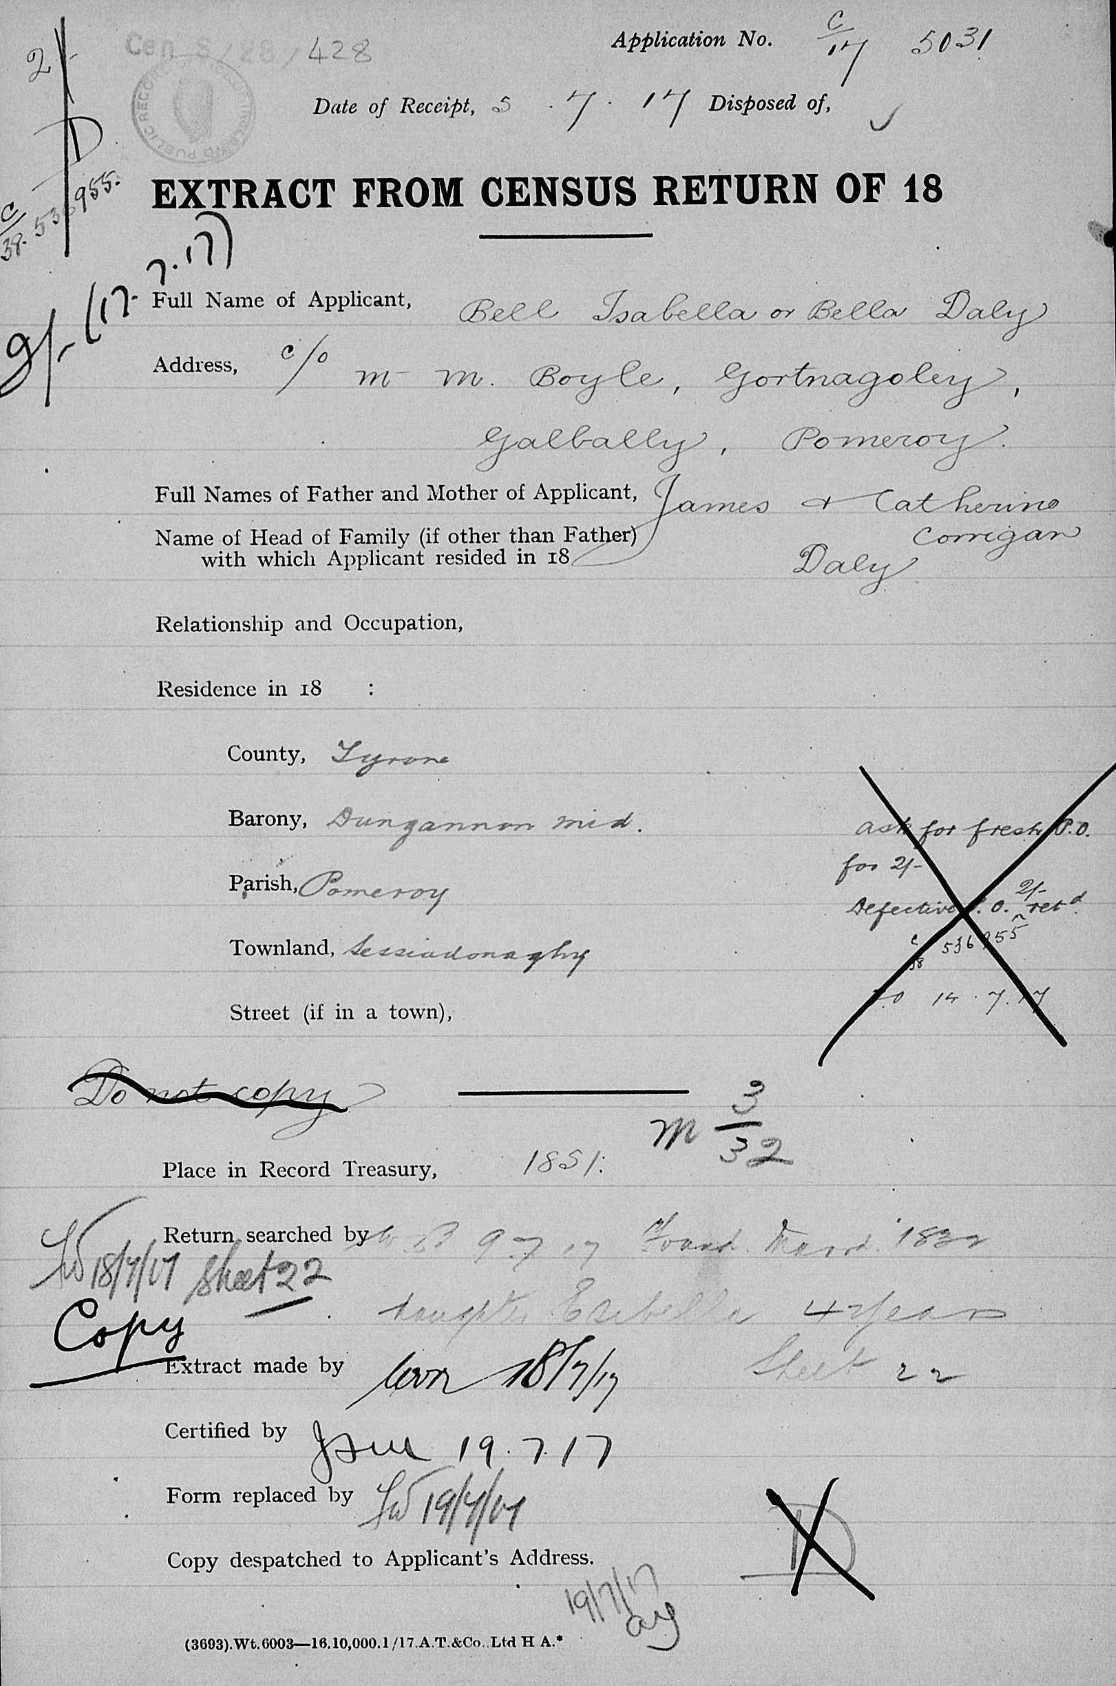 2/-
Cen S/28/428
Application No. C/17 5031
Date of Receipt, 5 . 7 . 17 Disposed of,
D
C/38. 536955.
EXTRACT FROM CENSUS RETURN OF 18
2/- (17. 7. 17)
Full Name of Applicant, Bell Isabella or Bella Daly
Address, c/o M M. Boyle, Gortnagoley,
Galbally, Pomeroy.
Full Names of Father and Mother of Applicant, James & Catherine
Name of Head of Family (if other than Father) Corrigan
with which Applicant resided in 18 Daly
Relationship and Occupation,
Residence in 18 :
County, Tyrone
Barony, Dungannon Mid.
ask for fresh P.O.
for 2/-
Parish, Pomeroy
Defective P.O. 2/- retd.
Townland, Sessiadonaghy
C/38 536955
Street (if in a town),
14 . 7. 17
Do not copy
M 3/32
Place in Record Treasury, 1851:
Return searched by 9.7.17 Found. Mard. 1832
18/7/17 Sheet 22
daughter Esibella 4 years
Copy
Extract made by 18/7/17 Sheet 22
Certified by 19.7.17
Form replaced by 19/7/17
D
Copy despatched to Applicant's Address.
19/7/17
(3693).Wt.6003—16.10,000.1/17.A.T.&Co.,Ltd H A.*